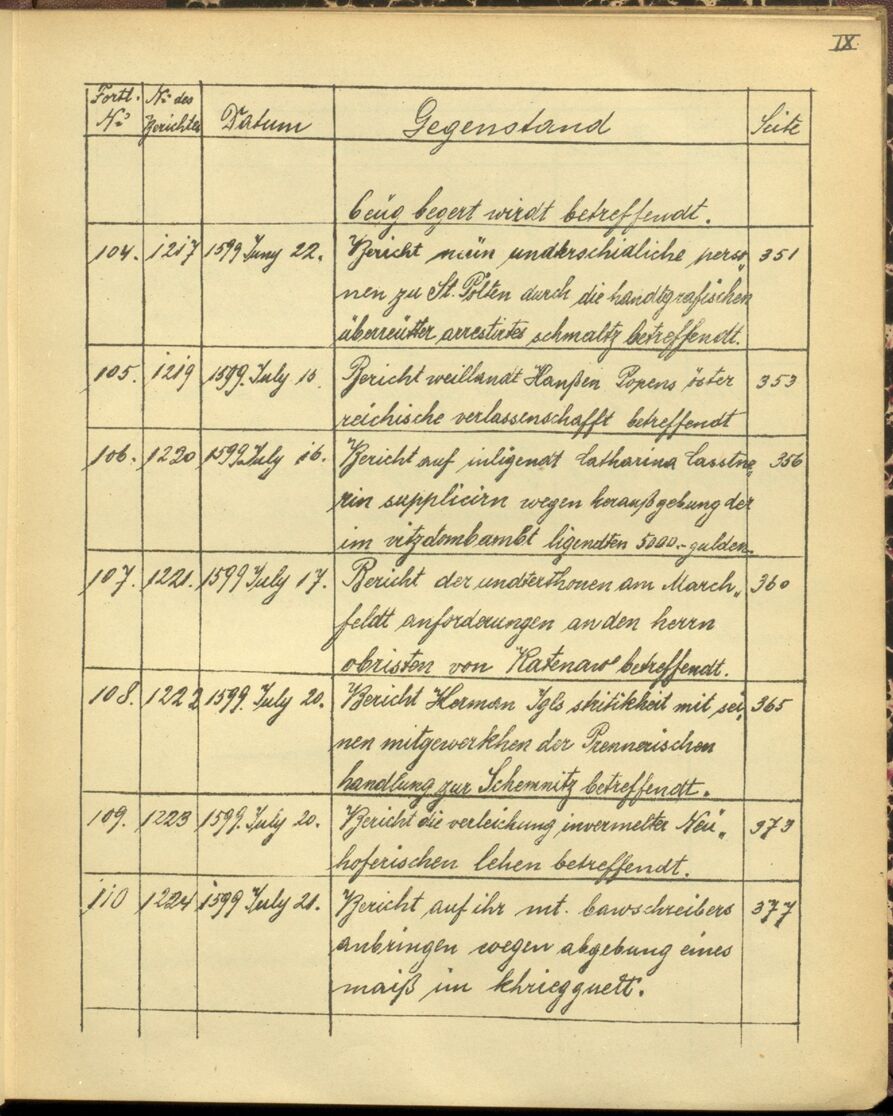 IX.
Fortl. No. No. des Berichtes Datum Gegenstand Seite
6eüg begert wirdt betreffendt.
104. 1217 1599 Juny 22. Bericht neün underschidliche perso„ 351
nen zu St. Pölten durch die handtgrafischen
überreütter arrestirtes schmaltz betreffendt.
105. 1219 1599. July 15. Bericht weillandt Hanßen Popens öster 353
reichische verlassenschafft betreffendt
106. 1220 1599. July 16. Bericht auf inligendt Catharina Casstne„ 356
rin supplicirn wegen heraußgebung der
im vitzdombambt ligendten 5000.- gulden.
107. 1221. 1599 July 17. Bericht der undterthonen am March„ 360
feldt anforderungen an den herrn
obristen von Katenaw betreffendt.
108. 1222 1599. July 20. Bericht Herman Igls stritikheit mit sei„ 365
nen mitgewerkhen der Prennerischen
handlung zur Schemnitz betreffendt.
109. 1223 1599. July 20. Bericht die verleichung invermelter Neü„ 373
hoferischen lehen betreffendt.
110 1224 1599 July 21. Bericht auf ihr mt. bawschreibers 377
anbringen wegen abgebung eines
maiß im khriegguett.